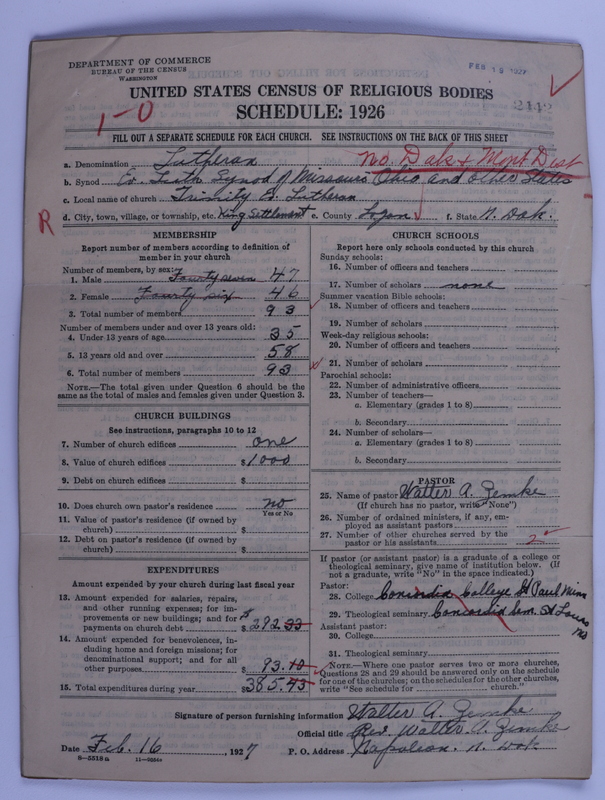 DEPARTMENT OF COMMERCE
BUREAU OF THE CENSUS
WASHINGTON
FEB 18 1927
UNITED STATES CENSUS OF RELIGIOUS BODIES
SCHEDULE: 1926
1-0
2142
FILL OUT A SEPARATE SCHEDULE FOR EACH CHURCH. SEE INSTRUCTIONS ON THE BACK OF THIS SHEET
No. Dak & Mont Dist
a. Denomination Lutheran
b. Synod Ev. Luth. Synod of Missouri Ohio and other States
c. Local name of church Trinity Ev. Lutheran
R
d. City, town, village, or township, etc. King Settlement e. County Logan f. State N. Dak.
MEMBERSHIP
Report number of members according to definition of
member in your church
Number of members, by sex:
1. Male Fourty seven 47
2. Female Fourty six 46
3. Total number of members 93
Number of members under and over 13 years old:
4. Under 13 years of age 35
5. 13 years old and over 58
6. Total number of members 93
NOTE.—The total given under Question 6 should be the
same as the total of males and females given under Question 3.
CHURCH BUILDINGS
See instructions, paragraphs 10 to 12
7. Number of church edifices one
8. Value of church edifices $1000
9. Debt on church edifices $
10. Does church own pastor's residence no
Yes or No
11. Value of pastor's residence (if owned by
church) $
12. Debt on pastor's residence (if owned by
church) $
EXPENDITURES
Amount expended by your church during last fiscal year
13. Amount expended for salaries, repairs,
and other running expenses; for im-
provements or new buildings; and for
payments on church debt $292.33
14. Amount expended for benevolences, in-
cluding home and foreign missions; for
denominational support; and for all
other purposes $93.10
15. Total expenditures during year $385.43
CHURCH SCHOOLS
Report here only schools conducted by this church
Sunday schools:
16. Number of officers and teachers
17. Number of scholars none
Summer vacation Bible schools:
18. Number of officers and teachers
19. Number of scholars
Week-day religious schools:
20. Number of officers and teachers
21. Number of scholars
Parochial schools:
22. Number of administrative officers
23. Number of teachers—
a. Elementary (grades 1 to 8)
b. Secondary
24. Number of scholars—
a. Elementary (grades 1 to 8)
b. Secondary
PASTOR
25. Name of pastor Walter A. Zemke
(If church has no pastor, write "None")
26. Number of ordained ministers, if any, em-
ployed as assistant pastors
27. Number of other churches served by the
pastor or his assistants 2
If pastor (or assistant pastor) is a graduate of a college or
theological seminary, give name of institution below. (If
not a graduate, write "No" in the space indicated.)
Pastor:
28. College Concordia College St Paul Minn
29. Theological seminary Concordia Sem. St Louis
Mo
Assistant pastor:
30. College
31. Theological seminary
NOTE.—Where one pastor serves two or more churches,
Questions 28 and 29 should be answered only on the schedule
for one of the churches; on the schedules for the other churches,
write "See schedule for church."
Signature of person furnishing information Walter A. Zemke
Official title Rev. Walter A. Zemke
Date Feb. 16, 1927 P. O. Address Napoleon. N. Dak
8-5518 a